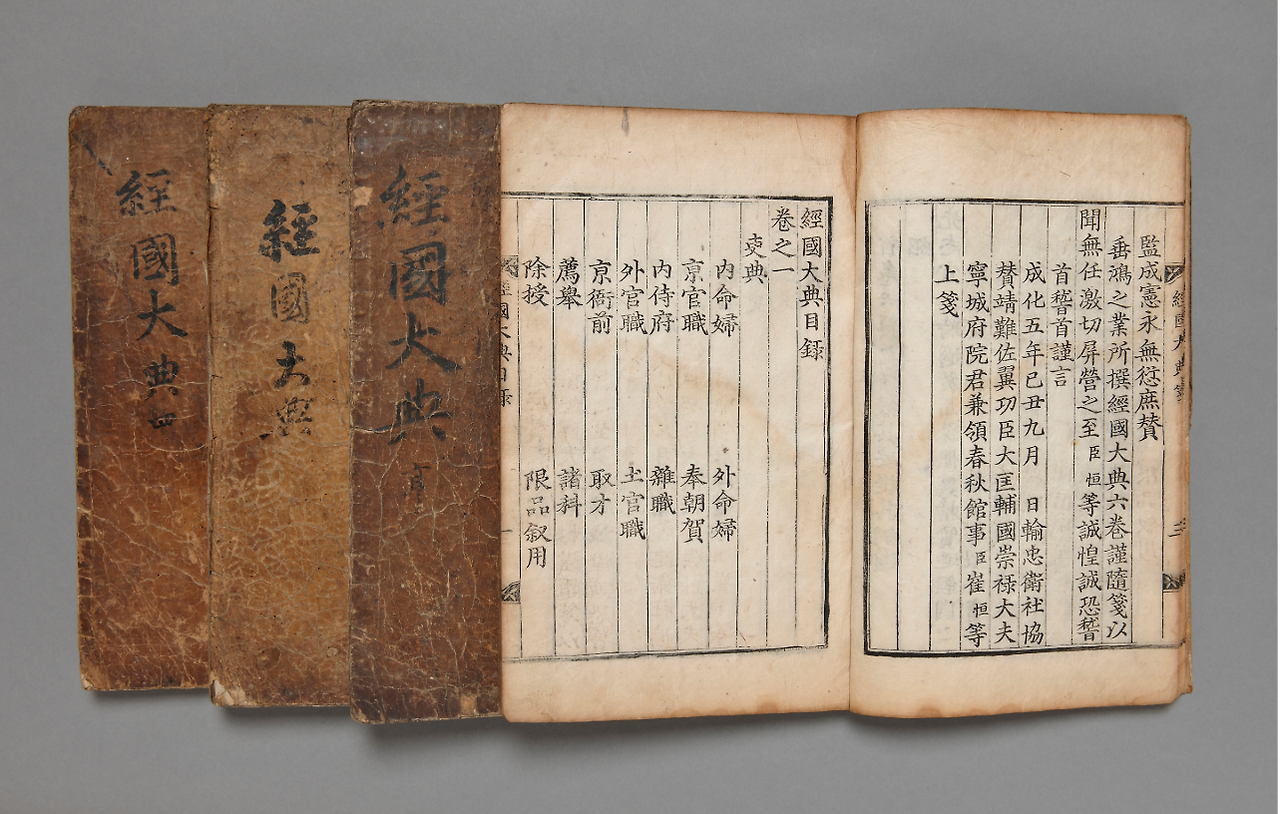 經國大典箋
監成憲永無愆庶賛
垂鴻之業所撰經國大典六卷謹隨箋以
聞無任激切屏營之至臣恒等誠惶誠恐稽
首稽首謹言
成化五年己丑九月 日輸忠衛社協
賛靖難佐翼功臣大匡輔國崇禄大夫
寧城府院君兼領春秋館事臣崔恒等
上箋
經國大典目録
卷之一
吏典
内命婦 外命婦
京官職 奉朝賀
内侍府 雜職
外官職 土官職
京衙前 取才
薦舉 諸科
除授 限品叙用
經國大典目録 一
經國大典
經國大典
經國大典